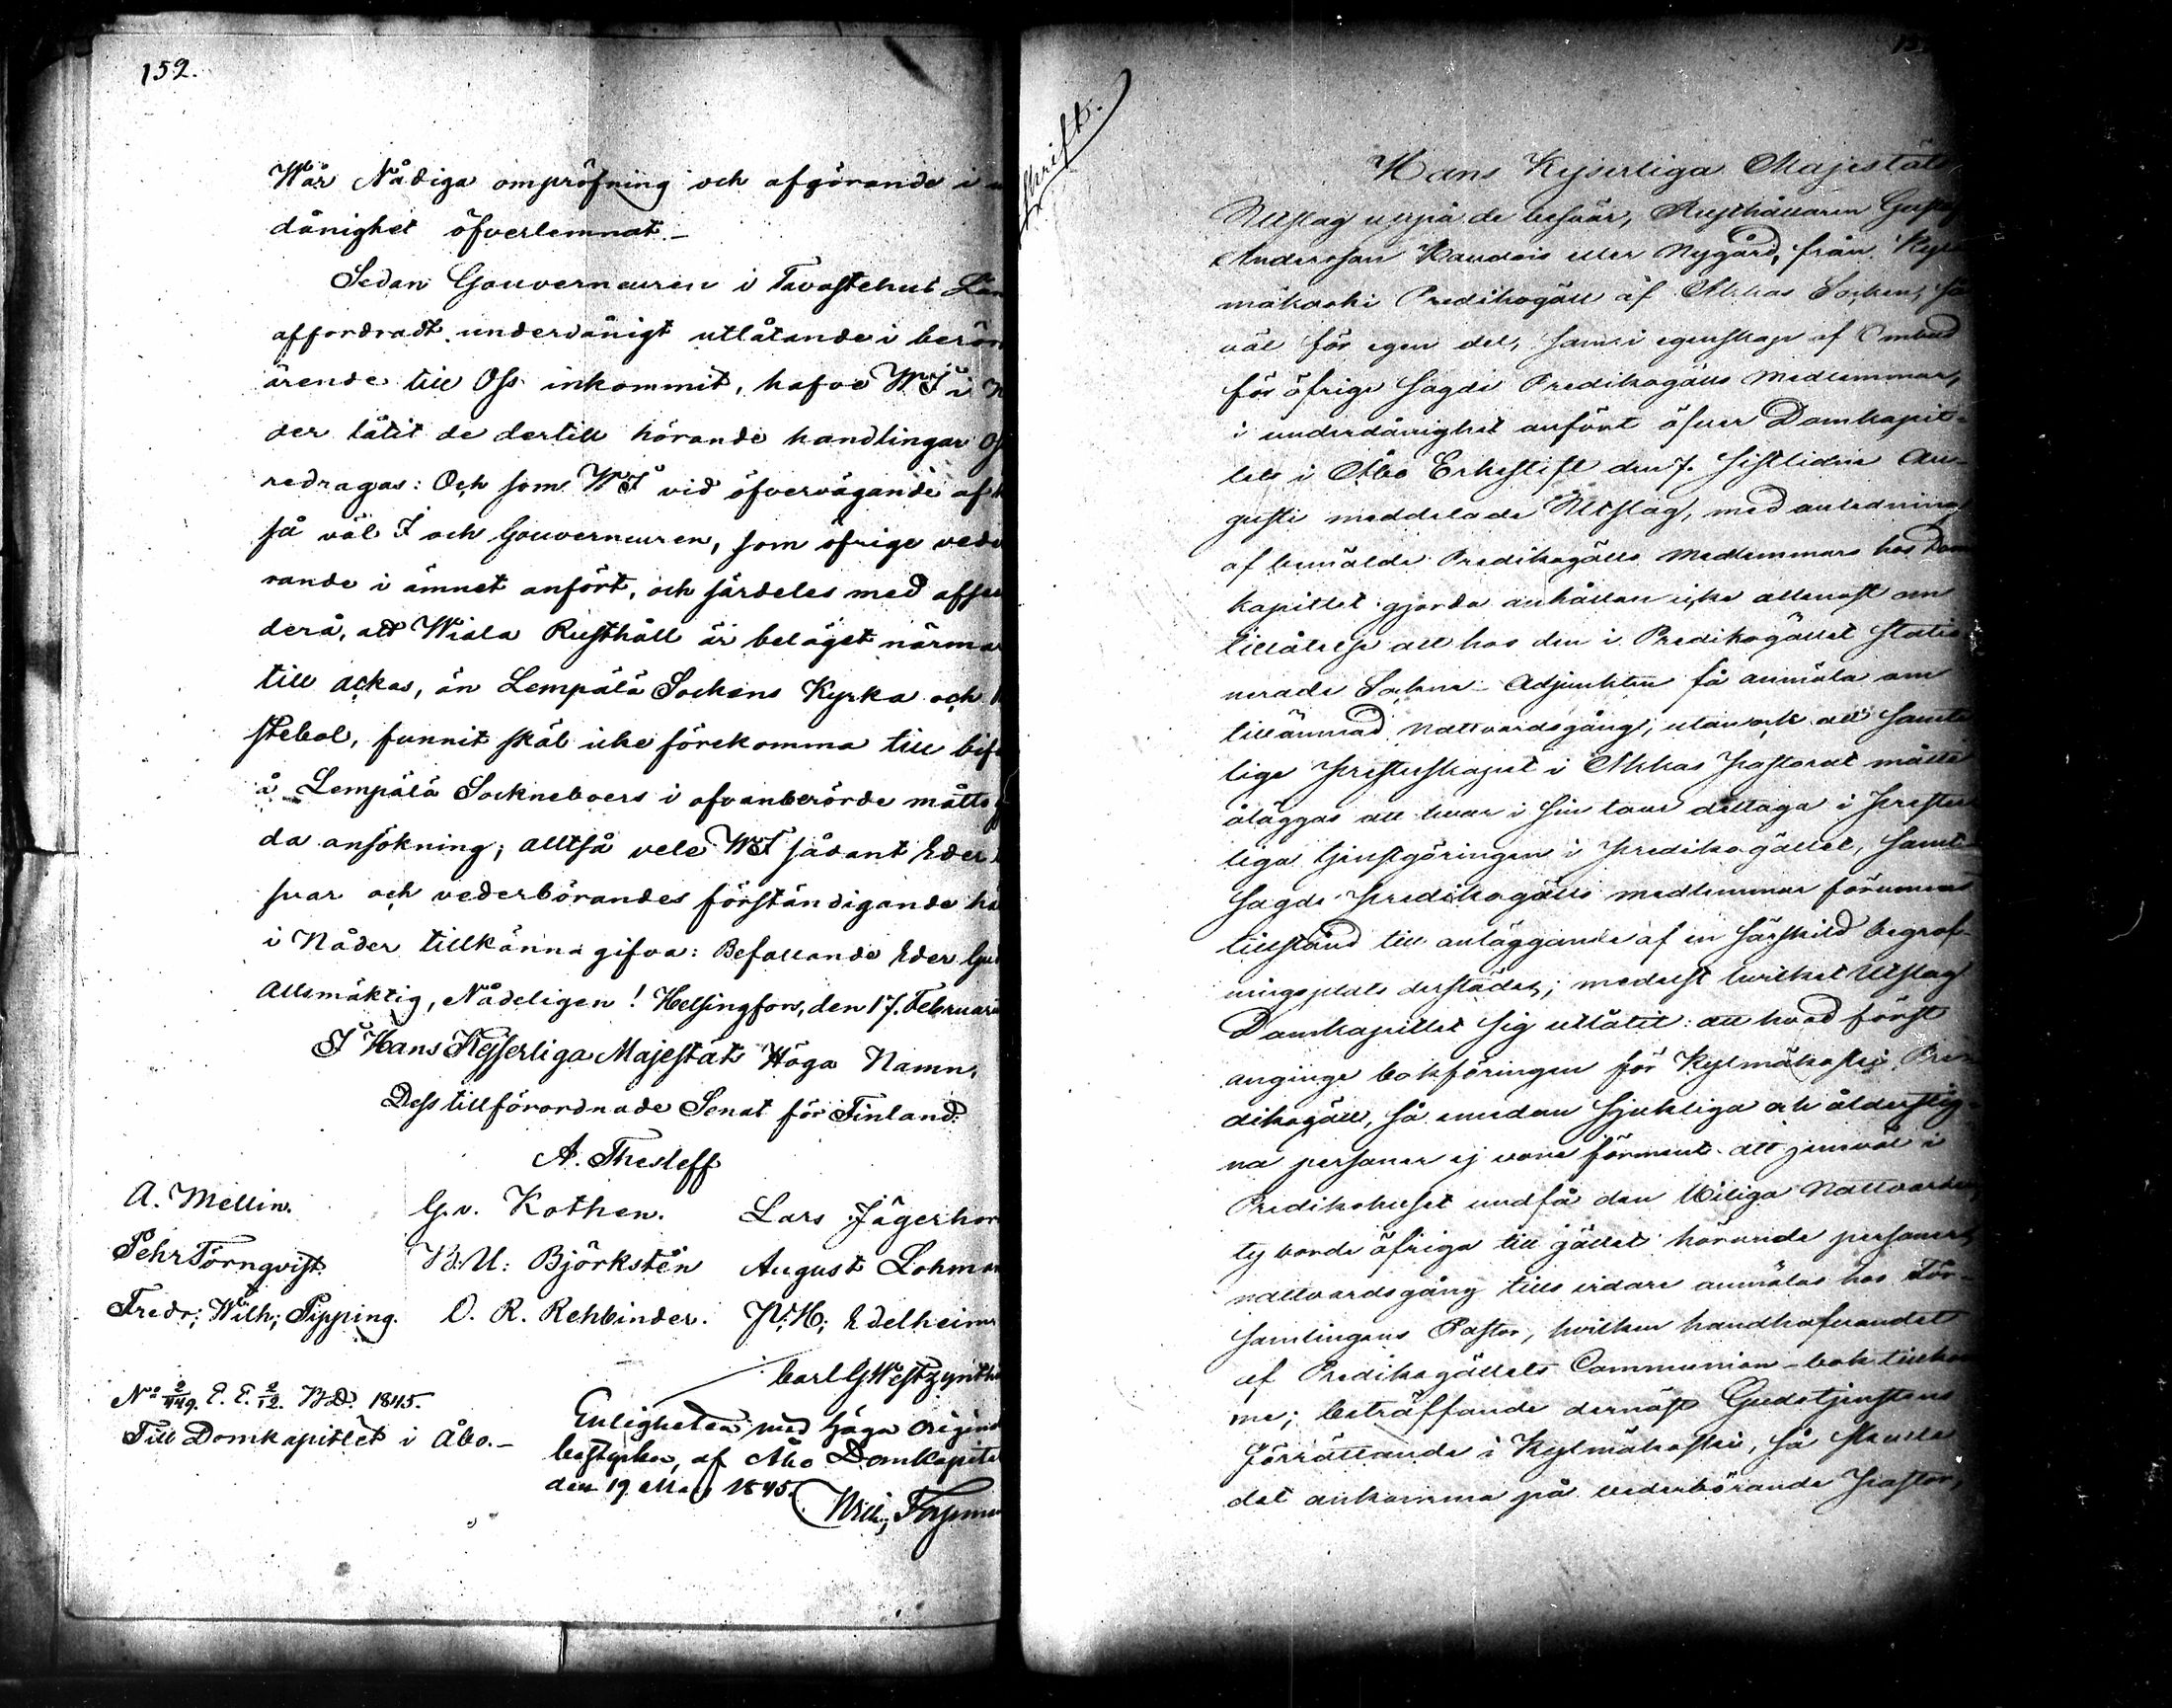 152.
Wår Nådiga ompröfning och afgörande i
dånighet öfverlemnat.–
Sedan Gouverneuren i Tavastehus Län
affordradt underdånigt utlåtande i berör
ärende till Oss inkommit, hafve Wi i
der låtit de dertill hörande handlingar
redragas: Och som Wi vid öfvervägande af
så väl I och Gouverneuren, som öfrige vede
rande i ämnet anfört, och särdeles med afse
derå, att Wiala Rusthåll är beläget närma
till Ackas, än Lempälä Sockens Kyrka och
stebol, funnit skäl icke förekomma till bif
å Lempälä Sockneboers i ofvanberörde måtto
da ansökning; alltså vele Wi sådant Eder
svar och vederbörandes förständigande hä
i Nåder tillkänna gifva: Befallande Eder Gud
Allsmäktig, Nådeligen! Helsingfors, den 17. Februari
I Hans Kejserliga Majestäts Höga Namn,
Dess tillförordnade Senat för Finland:
A. Thesleff
A. Mellin. G. v. Kothen. Lars Jägerhor
Pehr Törnqvist. B. U. Björkstén August Lohma
Fredr; Wilh; Pipping. O. R. Rehbinder. N; H; Edelheim
Carl G Westzynth
No 2/449. E. E. 2/12. B. D. 1845.
Till Domkapitlet i Åbo.–
Enligheten med höga origina
bestyrker, af Åbo Domkapite
den 19 Mars 1845.
Will;
skrift.
Hans Kejserliga Majestäts
Utslag uppå de besvär, Rusthållaren Gustaf
Andersson Kaudois eller Nygård, från Kyl
mäkoski Predikogäll af Akkas Socken, så
väl för egen del, som i egenskap af Ombud
för öfrige sagde Predikogälls Medlemmar,
i underdånighet anfört öfver Domkapit-
lets i Åbo Erkestift den 7. sistlidne Au-
gusti meddelade Utslag, med anledning
af bemälde Predikogälls Medlemmars hos Dom
kapitlet gjorda anhållan icke allenast om
tillåtelse att hos den i Predikogället statio
nerade Sockne-Adjunkten få anmäla om
tillämnad Nattvardsgång, utan ock att samte
lige Presterskapet i Akkas Pastorat måtte
åläggas att hvar i sin tour deltaga i Prester
liga tjenstgöringen i Predikogället, samt
sagde Predikogälls medlemmar förunnas
tillstånd till anläggande af en särskild begraf-
ningsplats derstädes; medelst hvilket Utslag
Domkapitlet sig utlåtit: att hvad först
anginge bokföringen för Kylmäkoski Pre
dikogäll, så emedan sjukliga och ålderstig-
na personer ej vore förment att jemväl i
Predikohuset undfå den Heliga Nattvarden,
ty borde öfriga till gället hörande personers
nattvardsgång tills vidare anmälas hos För-
samlingens Pastor, hvilken handhafvandet
af Predikogällets Communion-bok tillkom
me; beträffande dernäst Gudstjenstens
förrättande i Kylmäkoski, så skulle
det ankomma på vederbörande Pastor,